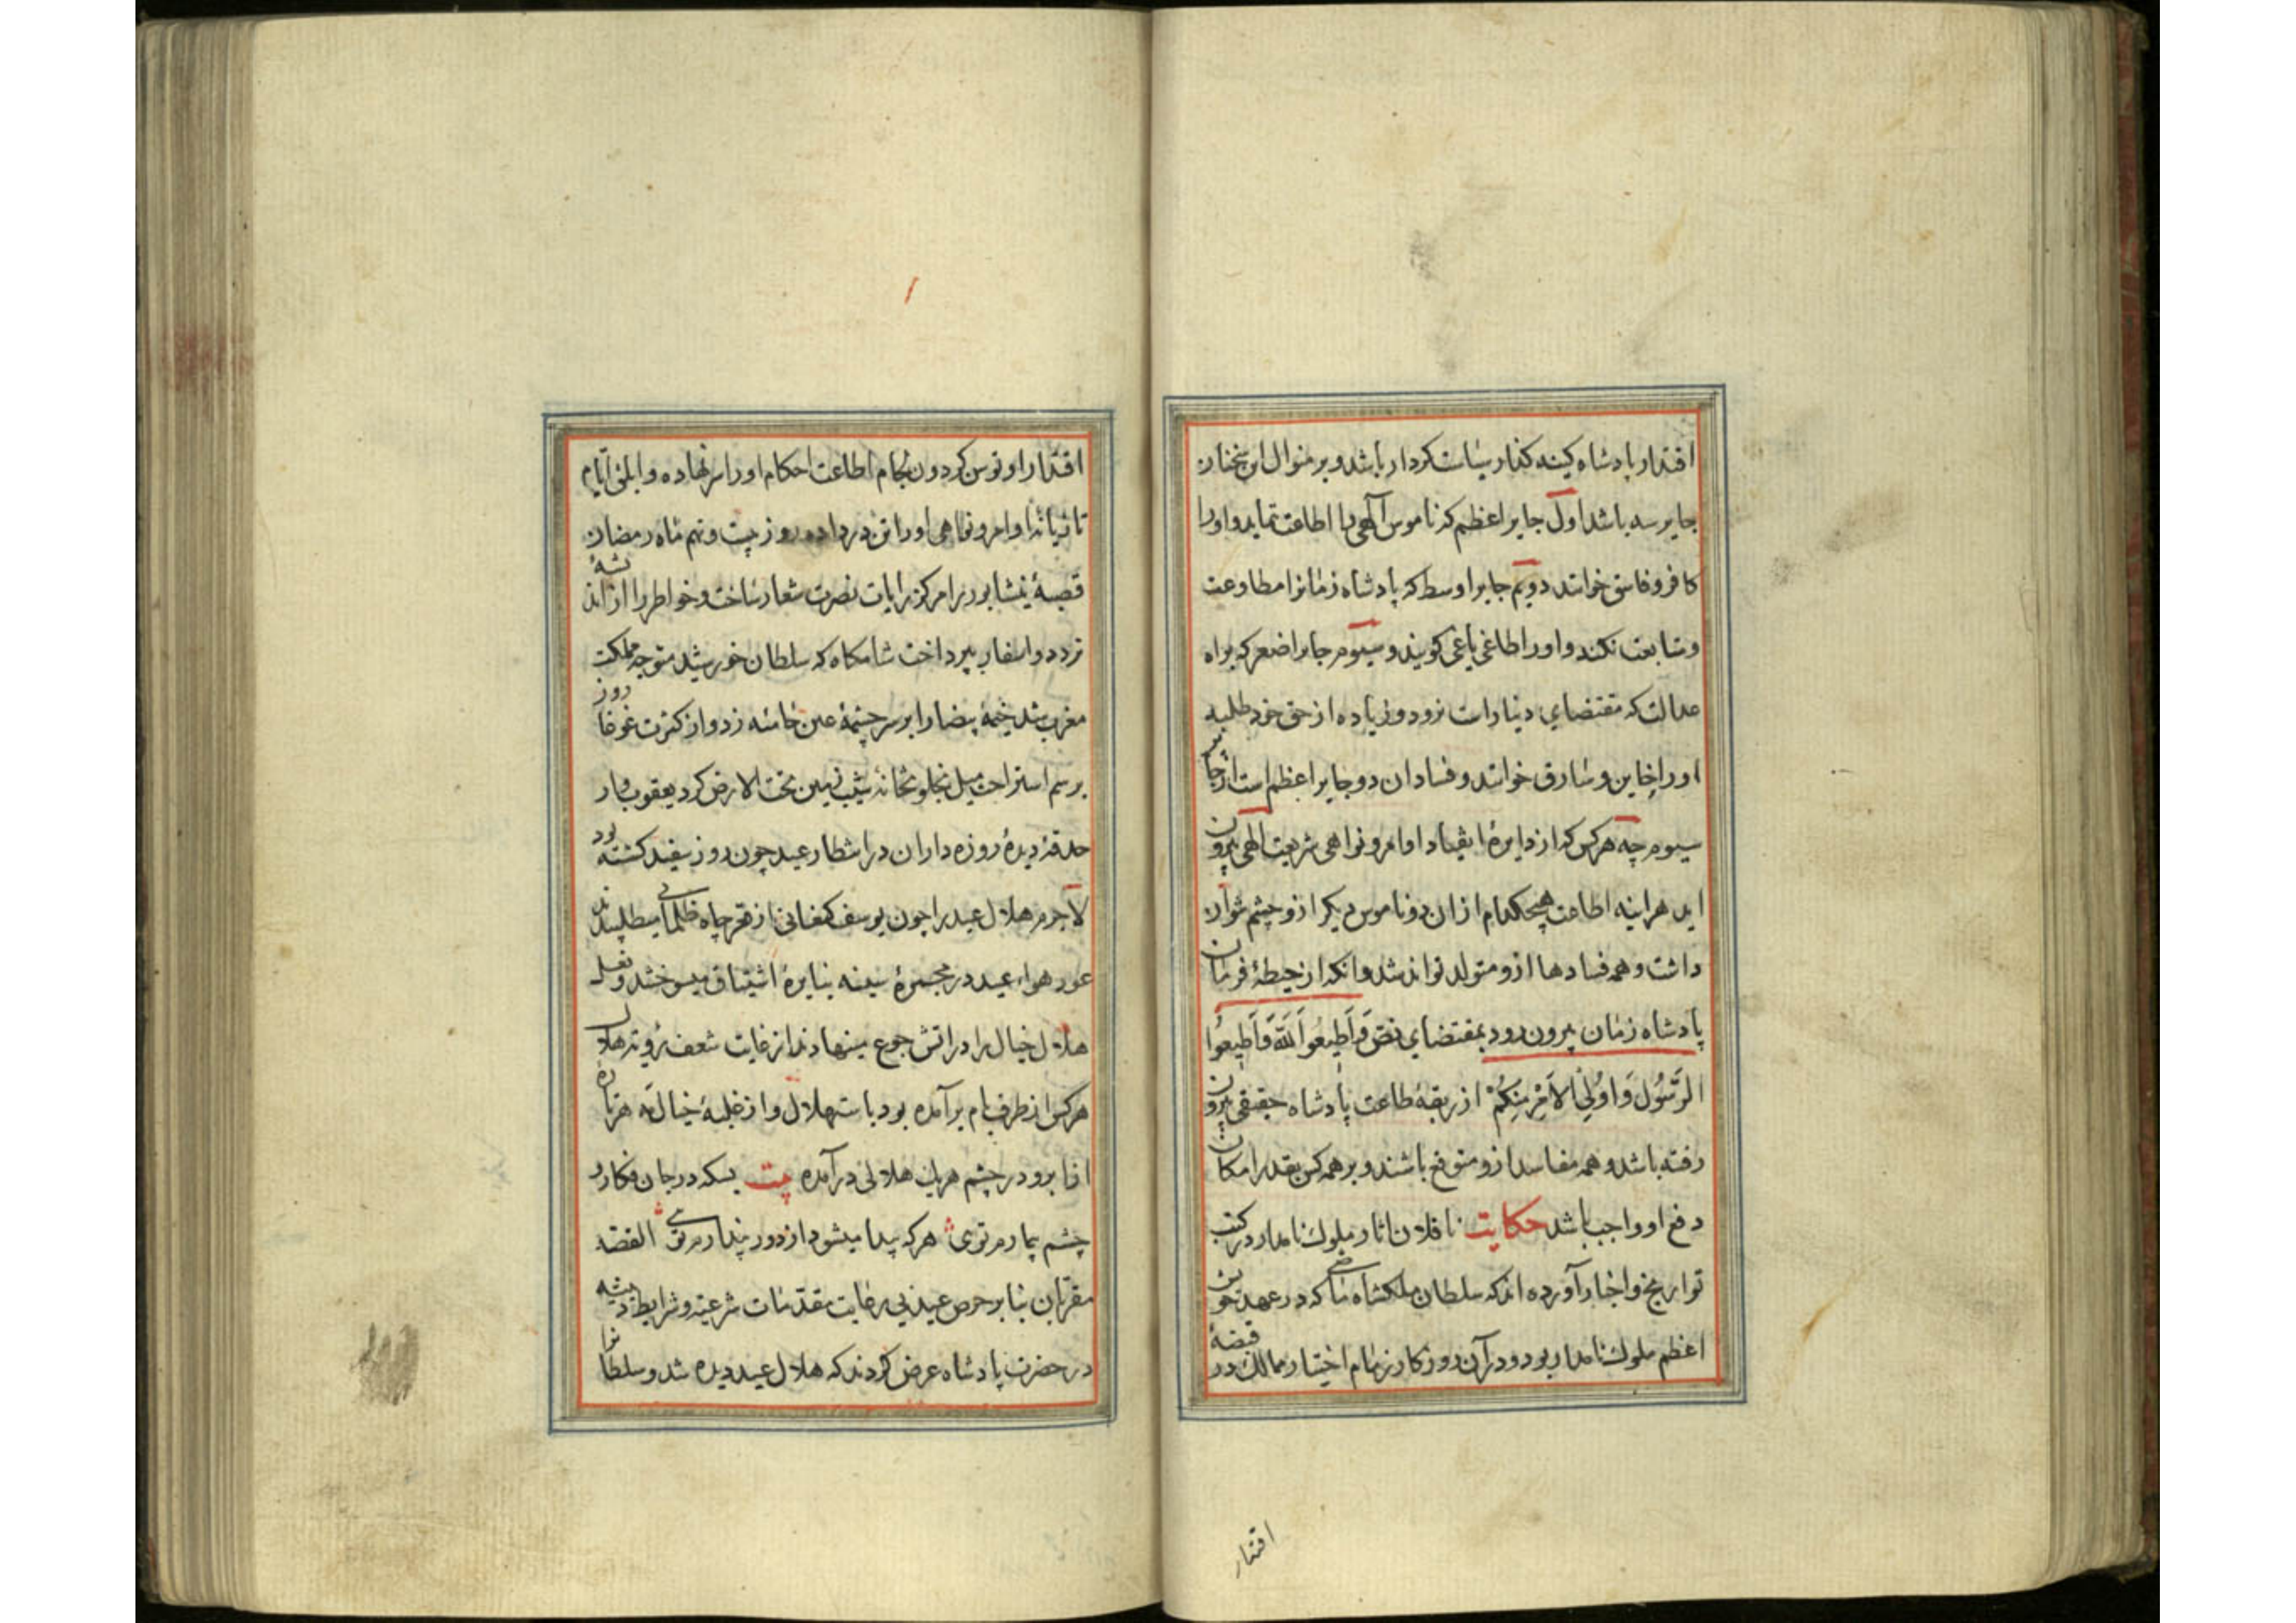 اقتدار پادشاه کینه کذار سیاست کردار باشد و بر منوال این سخنان
جایر سه باشد اول جایر اعظم که ناموس آلهی را اطاعت ننماید و او را
کافر و فاسق خوانند دویم جایر اوسط که پادشاه زمانرا مطاوعت
و متابعت نکند و او را طاغی یاغی کویند و سیوم جایر اصغر که براه
عدالت که مقتضای دنیارات نرود و زیاده از حق خود طلبد
او را خاین و سارق خوانند و فساد ان دو جایر اعظم است از جایر
سیوم چه هر کس که از دایرهٔ انقیاد اوامر و نواهی شریعت الهی بیرون
اید هراینه اطاعت هیچکدام از ان دو ناموس دیکر ازو چشم نتوان
داشت و همه فسادها ازو متولد تواند شد و انکه از حیطهٔ فرمان
پادشاه زمان بیرون رود بمقتضای نص وَاَطِیعُوا اَللّٰهَ وَاَطِیعُوا
الرَّسُولَ وَاوُلِی الاَمْرِ مِنکُمْ از ربقهٔ طاعت پادشاه حقیقی بیرون
رفته باشد و همه مفاسد ازو متوقع باشند و بر همه کس بقدر امکان
دفع او واجب باشد حکایت ناقلان اثار ملوک نامدار در کتب
تواریخ و اخبار آورده اند که سلطان ملکشاه ماضی که در عهد خویش
اعظم ملوک نامدار بود و در آن روزکار زمام اختیار ممالک در قبضهٔ
اقتدار
اقتدار او توسن کردون بلجام اطاعت احکام او را سر نهاده و ابلق ایام
تازیانهٔ اوامر و نواهی او را تن در داده روز بیست و نهم ماه رمضان
قصبهٔ نیشابور را مرکز رایات نصرت شعار ساخت و خواطر را از اندیشهٔ
تردد و اسفار بپرداخت شامکاه که سلطان خورشید متوجه مملکت
مغرب شد خیمهٔ بیضا را بر سر چشمهٔ عین حامئه زد و از کثرت غوغا روز
برسم استراحت میل بخلوتخانهٔ شیب زمین تحت الارض کرد یعقوب وار
حدقهٔ دیدهٔ روزه داران در انتظار عید چون روز سفید کشته بود
لاجرم هلال عید را چون یوسف کنعانی از قعر چاه ظلمانی میطلبیدند
عود هواء عید در مجمرهٔ سینه بنایرهٔ اشتیاق میسوختند و نعل
هلال خیال را در اتش جوع مینهادند از غایت شعف رؤیت هلال
هر کس از طرف بام برآمده بود باستهلال و از غلبهٔ خیال مه هر پارهٔ
ابرو در چشم هر یک هلالی درآمده بیت بسکه در جان فکار و
چشم بیمارم توی هر که پیدا میشود از دور پندارم توی القصه
مقربان بنا بر حرص عید بی رعایت مقدمات شرعیه و شرایط
در حضرت پادشاه عرض کردند که هلال عید دیده شد و سلطانرا